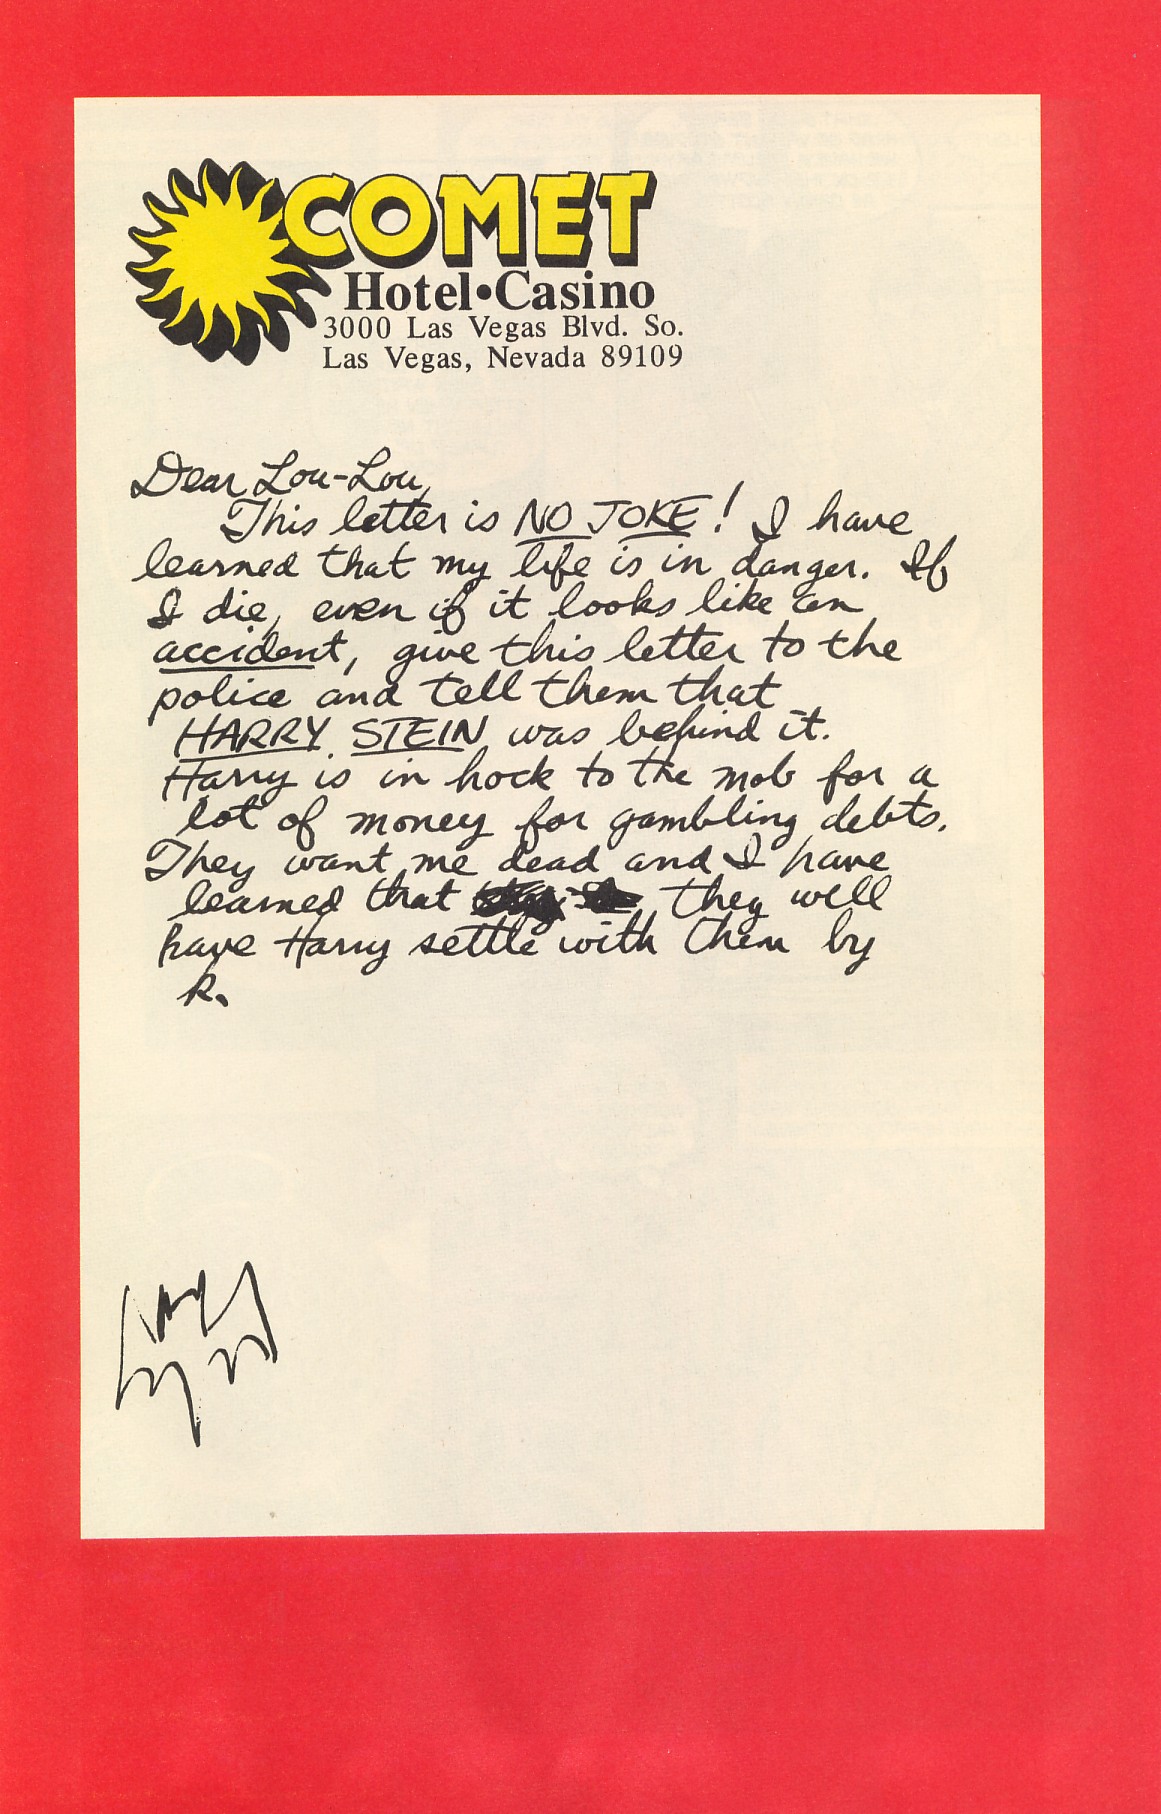 COMET
Hotel•Casino
3000 Las Vegas Blvd. So.
Las Vegas, Nevada 89109
Dear Lou-Lou,
This letter is NO JOKE! I have
learned that my life is in danger. If
I die, even if it looks like an
accident, give this letter to the
police and tell them that
HARRY STEIN was behind it.
Harry is in hock to the mob for a
lot of money for gambling debts.
They want me dead and I have
learned that they will
have Harry settle with them by
k.